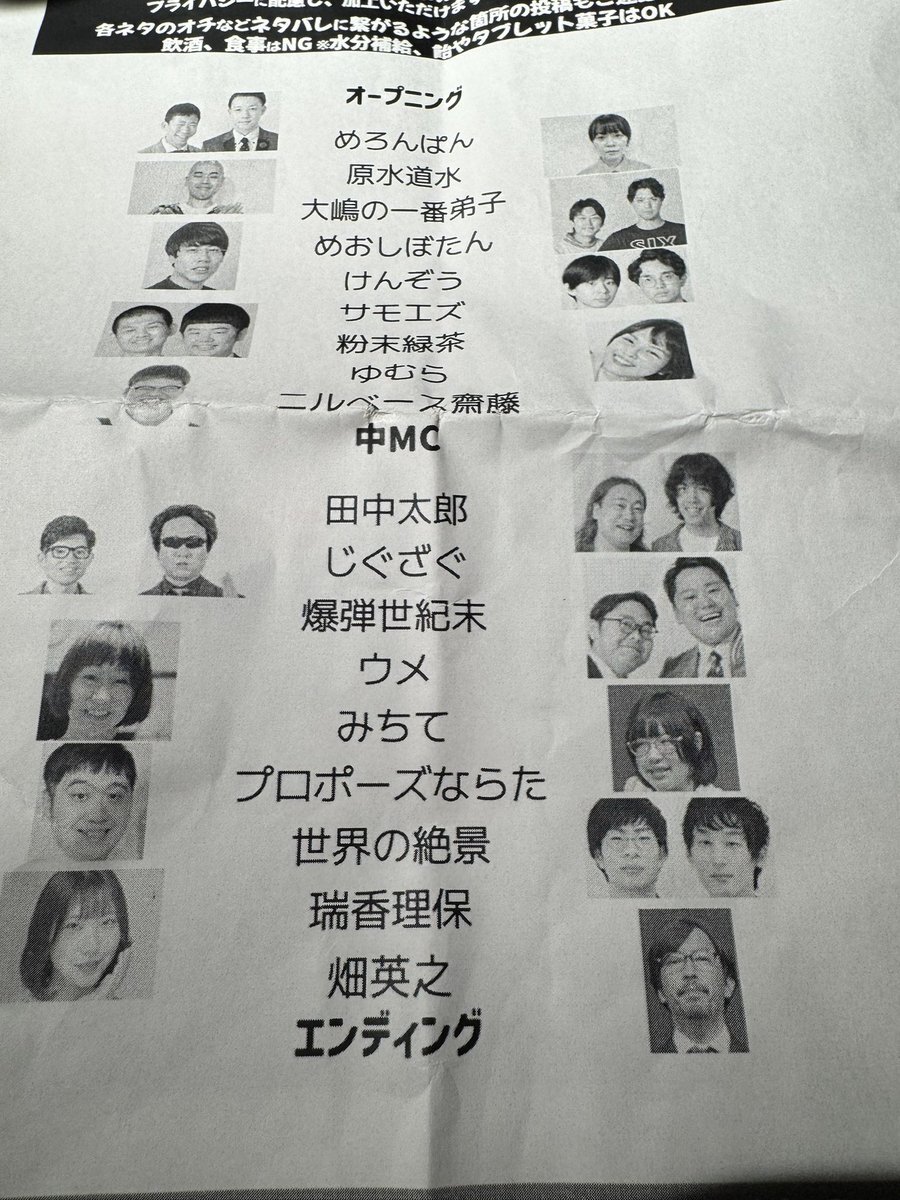 プライバシーに配慮し、加工いただけます
各ネタのオチなどネタバレに繋がるような箇所の投稿もご遠慮
飲酒、食事はNG ※水分補給、飴やタブレット菓子はOK
オープニング
めろんぱん
原水道水
大嶋の一番弟子
めおしぼたん
けんぞう
サモエズ
粉末緑茶
ゆむら
ニルベース齋藤
中MC
田中太郎
じぐざぐ
爆弾世紀末
ウメ
みちて
プロポーズならた
世界の絶景
瑞香理保
畑英之
エンディング
SIX